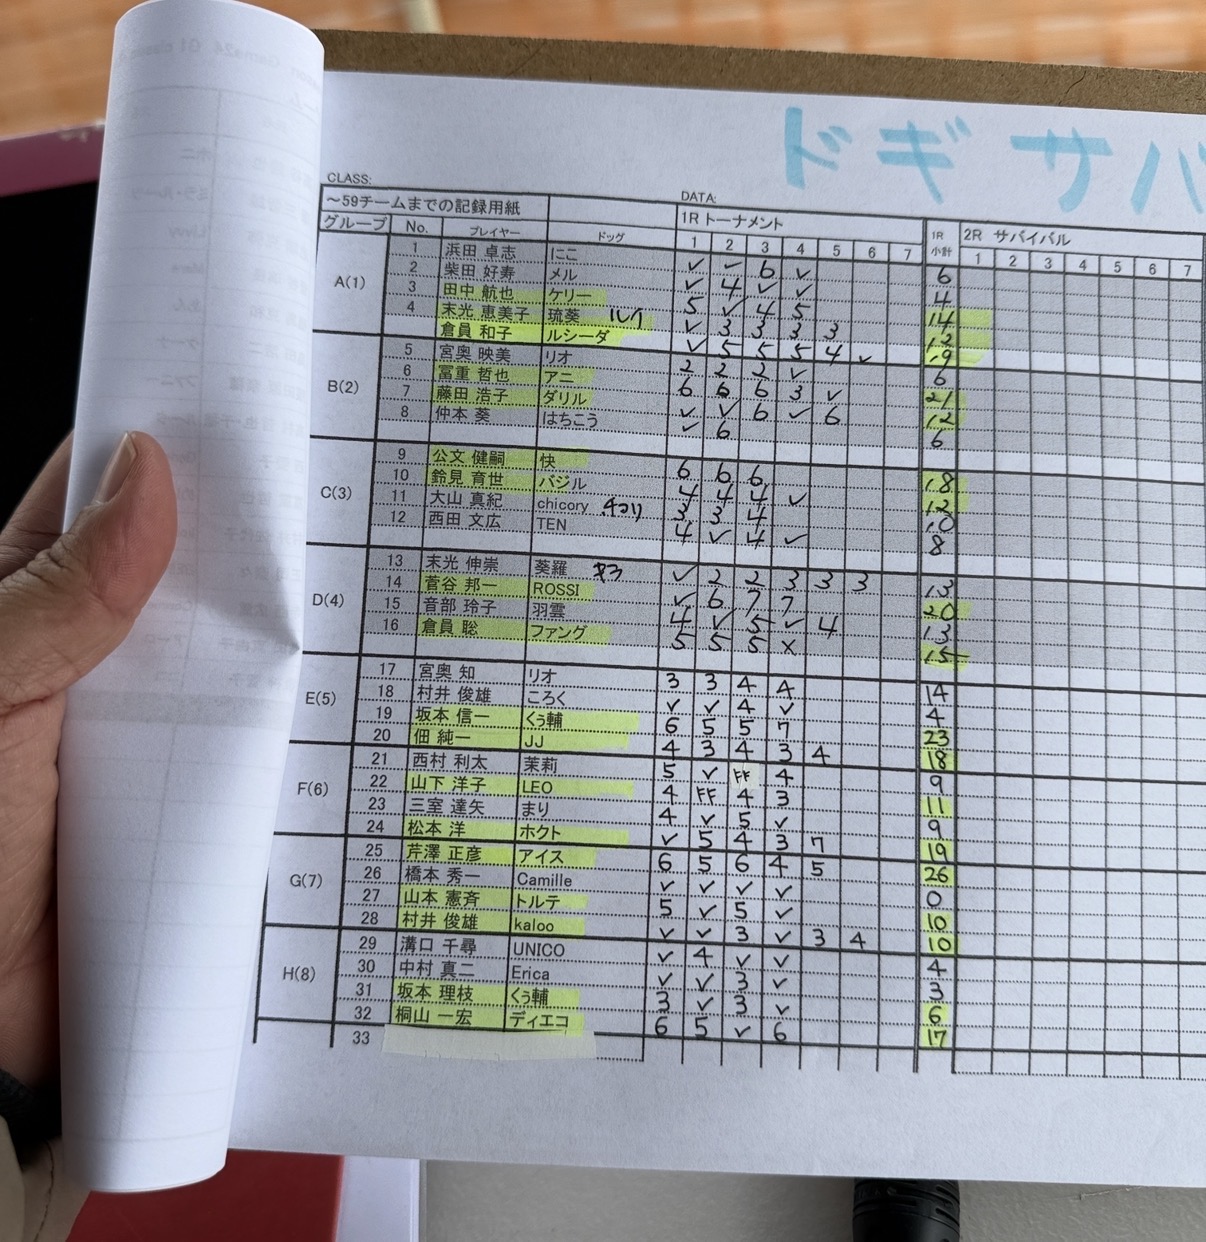 ドギサバ
CLASS:
DATA:
~59チームまでの記録用紙
1R トーナメント 1R 小計 2R サバイバル
グループ No. プレイヤー ドッグ 1 2 3 4 5 6 7 1 2 3 4 5 6 7
A(1)
1 浜田 卓志 にこ ✓ ✓ 6 ✓ 6
2 柴田 好寿 メル ✓ 4 ✓ ✓ 4
3 田中 航也 ケリー 5 ✓ 4 5 14
4 末光 恵美子 琉葵 ルイ ✓ 3 3 3 3 12
倉員 和子 ルシーダ ✓ 5 5 5 4 ✓ 19
B(2)
5 宮奥 映美 リオ 2 2 2 ✓ 6
6 冨重 哲也 アニ 6 6 6 3 ✓ 21
7 藤田 浩子 ダリル ✓ ✓ 6 ✓ 6 12
8 仲本 葵 はちこう ✓ 6 6
C(3)
9 公文 健嗣 快 6 6 6 18
10 鈴見 育世 バジル 4 4 4 ✓ 12
11 大山 真紀 chicory チコリ 3 3 4 10
12 西田 文広 TEN 4 ✓ 4 ✓ 8
D(4)
13 末光 伸崇 葵羅 キラ ✓ 2 2 3 3 3 13
14 菅谷 邦一 ROSSI ✓ 6 7 7 20
15 音部 玲子 羽雲 4 ✓ 5 ✓ 4 13
16 倉員 聡 ファング 5 5 5 × 15
E(5)
17 宮奥 知 リオ 3 3 4 4 14
18 村井 俊雄 ころく ✓ ✓ 4 ✓ 4
19 坂本 信一 くぅ輔 6 5 5 7 23
20 佃 純一 JJ 4 3 4 3 4 18
F(6)
21 西村 利太 茉莉 5 ✓ FF 4 9
22 山下 洋子 LEO 4 FF 4 3 11
23 三室 達矢 まり 4 ✓ 5 ✓ 9
24 松本 洋 ホクト ✓ 5 4 3 7 19
G(7)
25 芹澤 正彦 アイス 6 5 6 4 5 26
26 橋本 秀一 Camille ✓ ✓ ✓ ✓ 0
27 山本 憲斉 トルテ 5 ✓ 5 ✓ 10
28 村井 俊雄 kaloo ✓ ✓ 3 ✓ 3 4 10
H(8)
29 溝口 千尋 UNICO ✓ 4 ✓ ✓ 4
30 中村 真二 Erica ✓ ✓ 3 ✓ 3
31 坂本 理枝 くぅ輔 3 ✓ 3 ✓ 6
32 桐山 一宏 ディエコ 6 5 ✓ 6 17
33